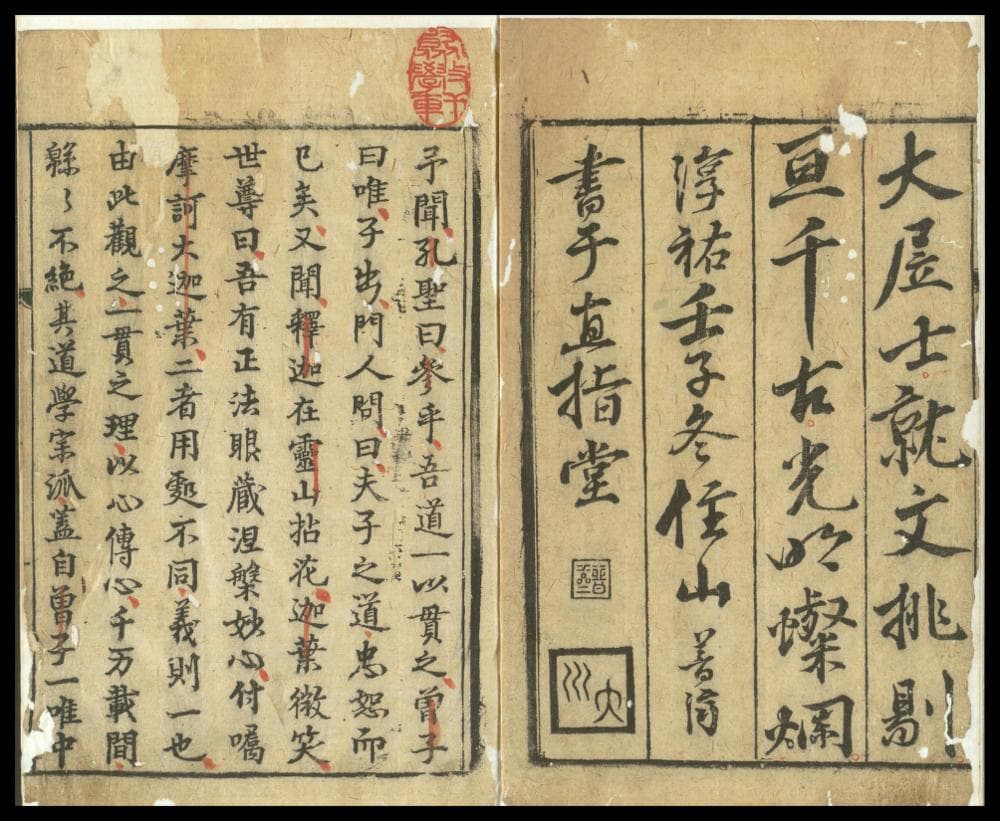 大居士就文挑剔
亘千古光明燦爛
淳祐壬子冬住山普濟
書于直指堂
大川
予聞孔聖曰參乎吾道一以貫之曾子
曰唯子出門人問曰夫子之道忠恕而
已矣又聞釋迦在靈山拈花迦葉微笑
世尊曰吾有正法眼藏涅槃妙心付囑
摩訶大迦葉二者用䖏不同義則一也
由此觀之一貫之理以心傳心千万載間
緜〻不絶其道學宗派盖自曾子一唯中